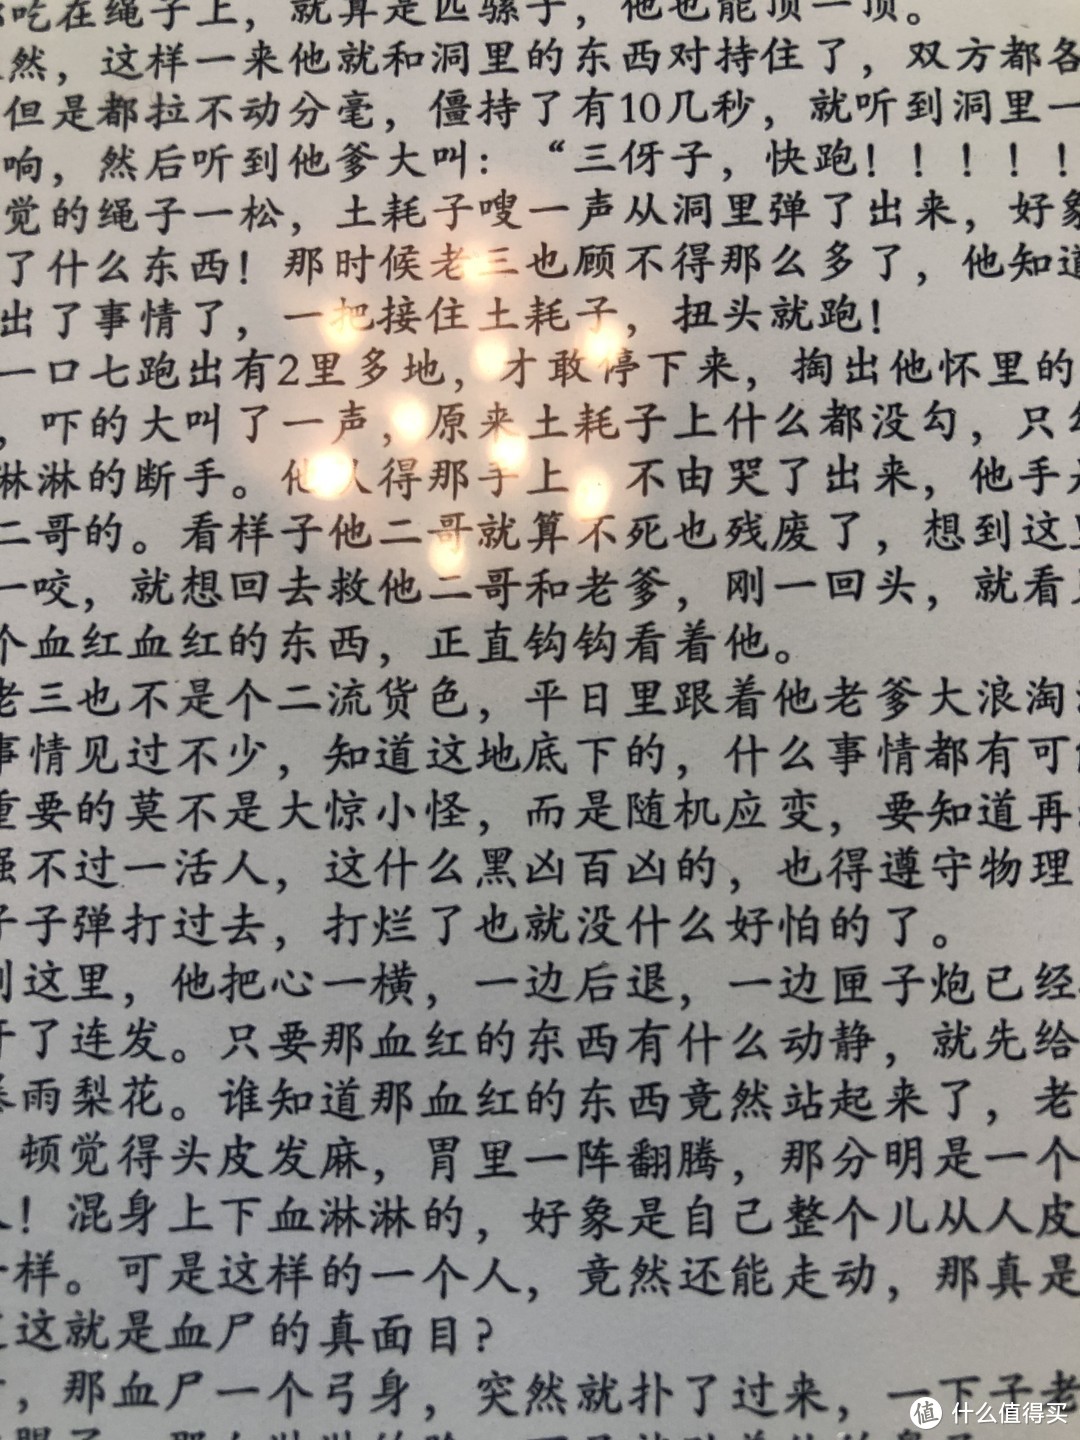 吃在绳子上，就算是匹骡子，他也能顶一顶。
然，这样一来他就和洞里的东西对持住了，双方都各
但是都拉不动分毫，僵持了有10几秒，就听到洞里一
响，然后听到他爹大叫：“三伢子，快跑！！！！！
觉的绳子一松，土耗子嗖一声从洞里弹了出来，好象
了什么东西！那时候老三也顾不得那么多了，他知道
出了事情了，一把接住土耗子，扭头就跑！
一口七跑出有2里多地，才敢停下来，掏出他怀里的
，吓的大叫了一声，原来土耗子上什么都没勾，只勾
淋淋的断手。他认得那手上，不由哭了出来，他手是
二哥的。看样子他二哥就算不死也残废了，想到这里
一咬，就想回去救他二哥和老爹，刚一回头，就看见
个血红血红的东西，正直钩钩看着他。
老三也不是个二流货色，平日里跟着他老爹大浪淘
事情见过不少，知道这地底下的，什么事情都有可能
重要的莫不是大惊小怪，而是随机应变，要知道再
强不过一活人，这什么黑凶百凶的，也得遵守物理
子子弹打过去，打烂了也就没什么好怕的了。
到这里，他把心一横，一边后退，一边匣子炮已经
开了连发。只要那血红的东西有什么动静，就先给
暴雨梨花。谁知道那血红的东西竟然站起来了，老
顿觉得头皮发麻，胃里一阵翻腾，那分明是一个
人！混身上下血淋淋的，好象是自己整个儿从人皮
一样。可是这样的一个人，竟然还能走动，那真是
这就是血尸的真面目？
，那血尸一个弓身，突然就扑了过来，一下子老
值 什么值得买